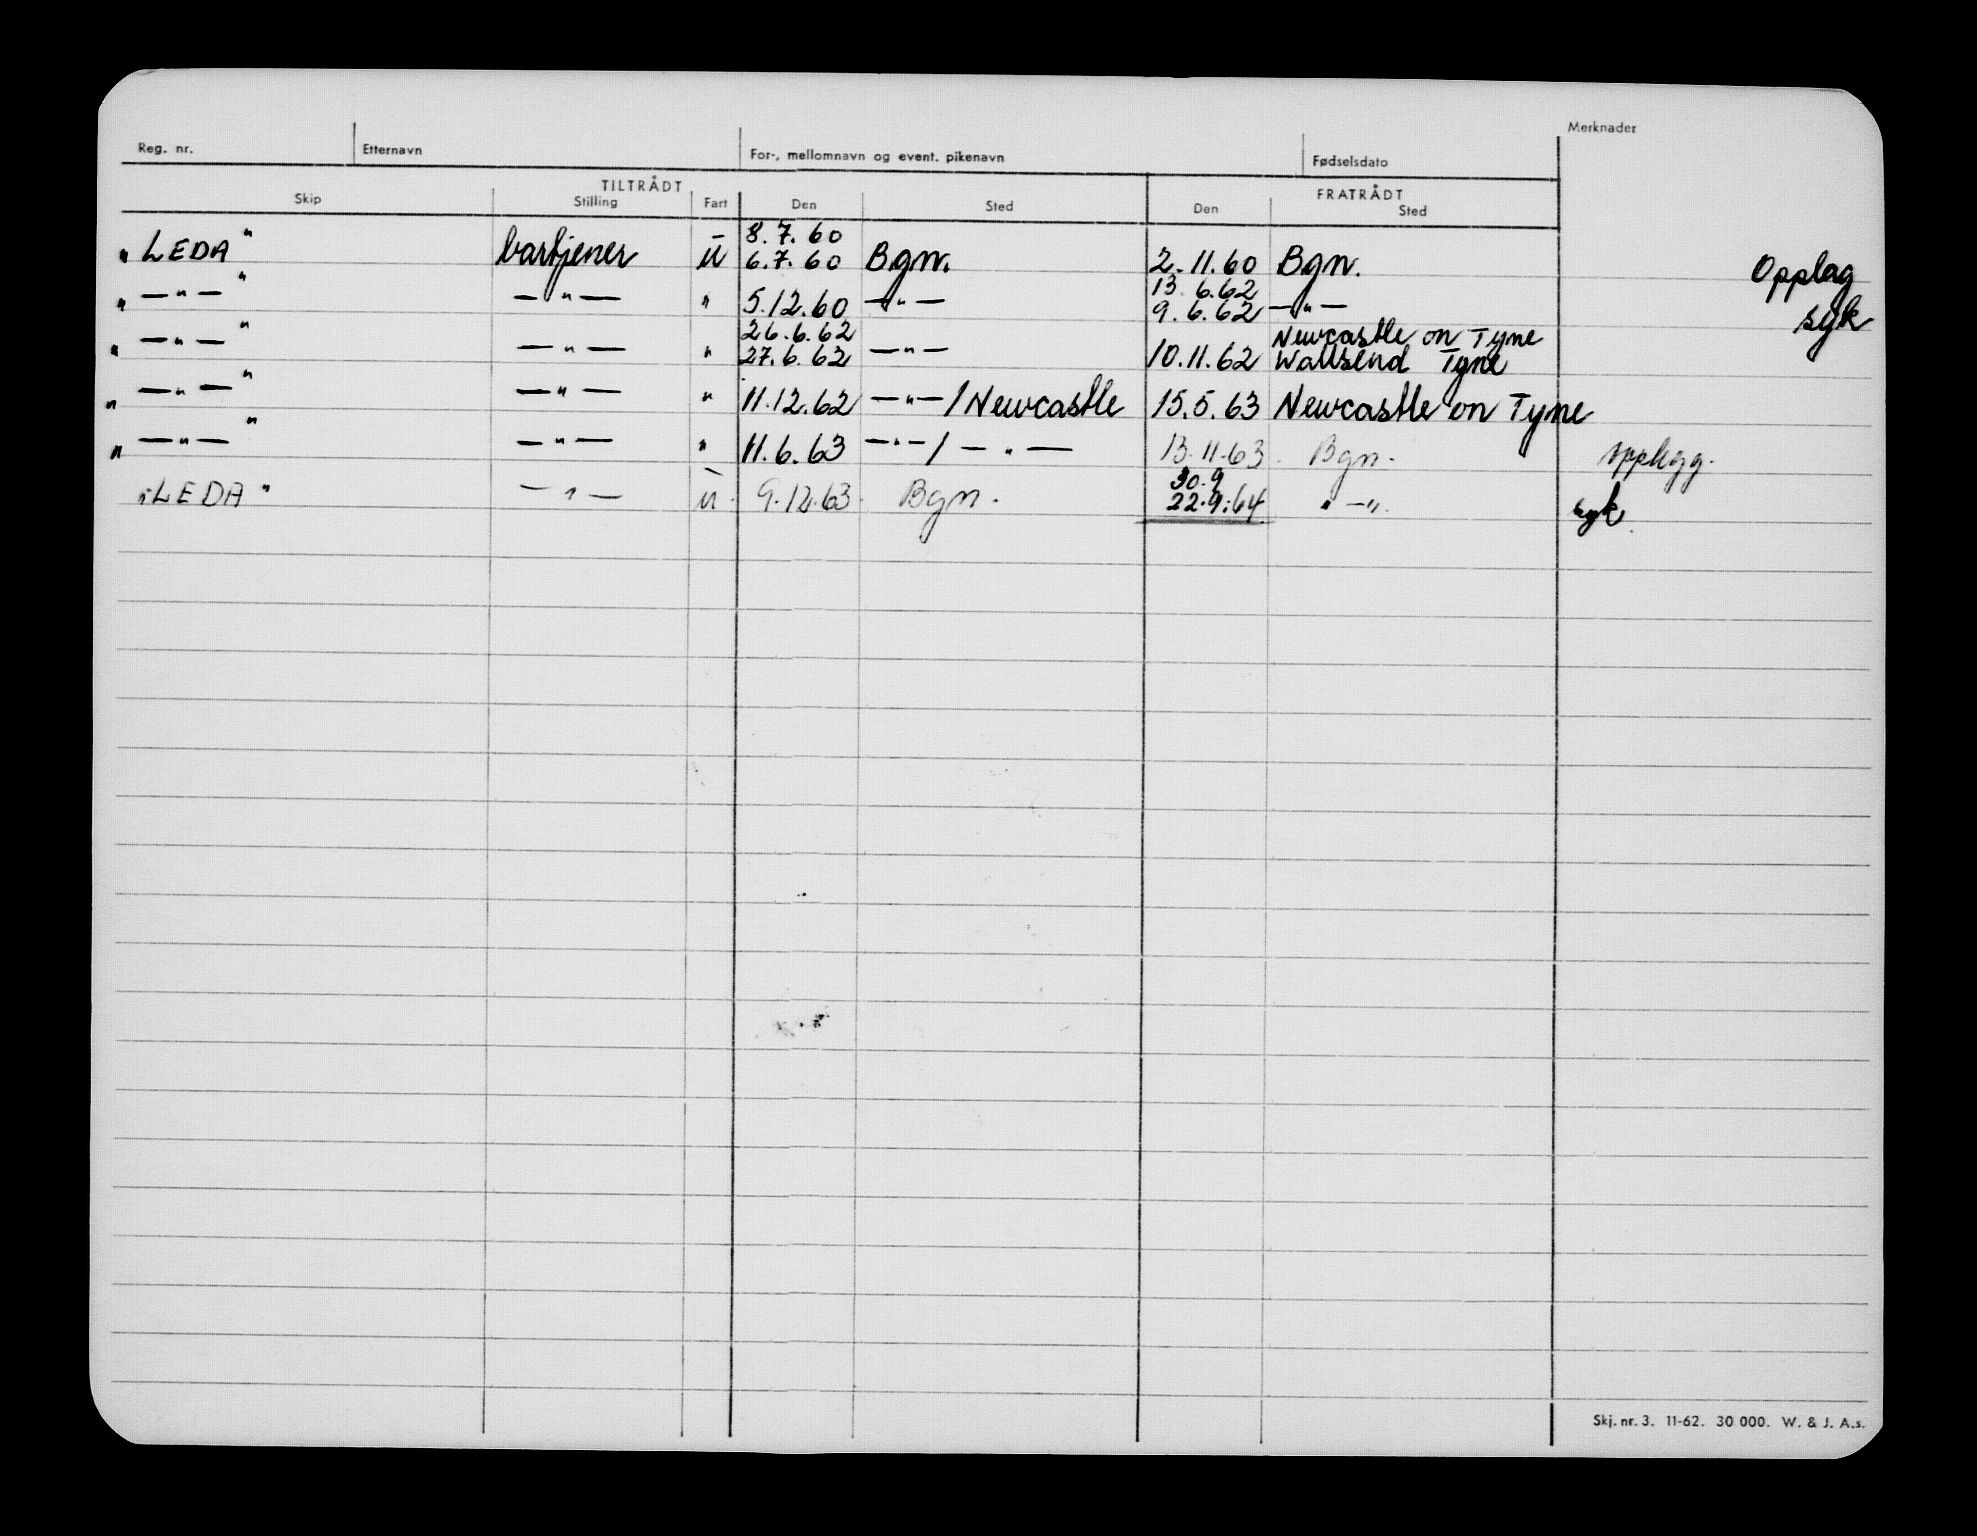 Reg. nr. Etternavn For-, mellomnavn og event. pikenavn Fødselsdato Merknader
TILTRÅDT FRATRÅDT
Skip Stilling Fart Den Sted Den Sted
8. 7. 60
"LEDA" bartjener u 6.7. 60 Bgn. 2.11.60 Bgn. Opplag
13 6.62
" —"— " —"— " 5.12.60 —"— 9. 6. 62 —"— syk
26.6.62 Newcastle on Tyne
" —"— " —"— " 27.6.62 —"— 10.11.62 Wallsend Tyne
" —"— " —"— " 11.12.62 —"—/Newcastle 15.5.63 Newcastle on Tyne
" —"— " —"— " 11.6.63 —"—/—"— 13.11.63. Bgn. opplegg.
30.9
"LEDA" —"— u. 9.12.63. Bgn. 22.9.64 " —". syk.
Skj. nr. 3. 11-62. 30 000. W. & J. A.s.